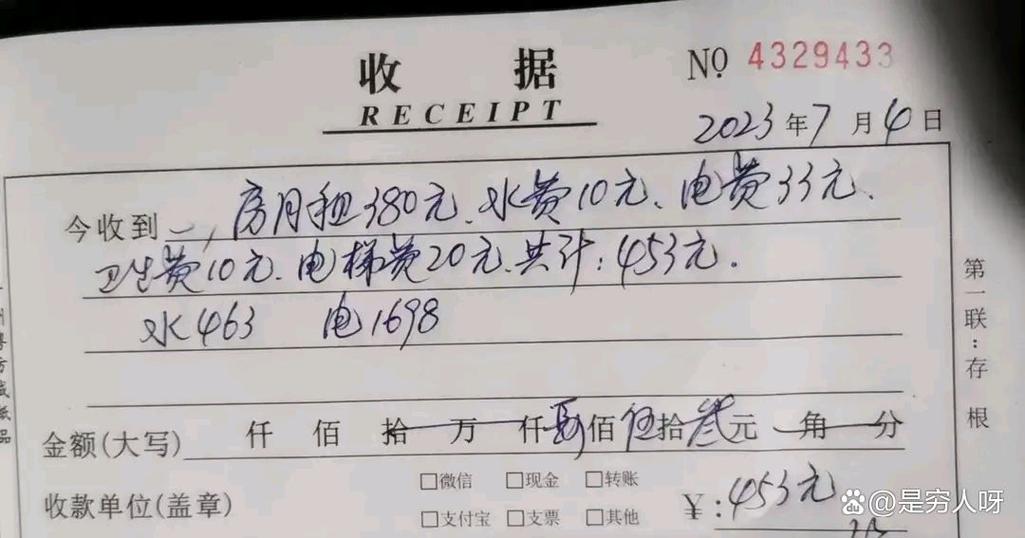 收 据
RECEIPT
NO 4329433
2023年7月4日
今收到 一,房月租380元、水费10元、电费33元、
卫生费10元、电梯费20元、共计:453元.
水463 电1698
第一联:存根
金额(大写) 仟 佰 拾 万 仟肆佰伍拾叁元 角 分
收款单位(盖章)
□微信 □现金 □转账
□支付宝 □支票 □其他
¥:453元
@是穷人呀